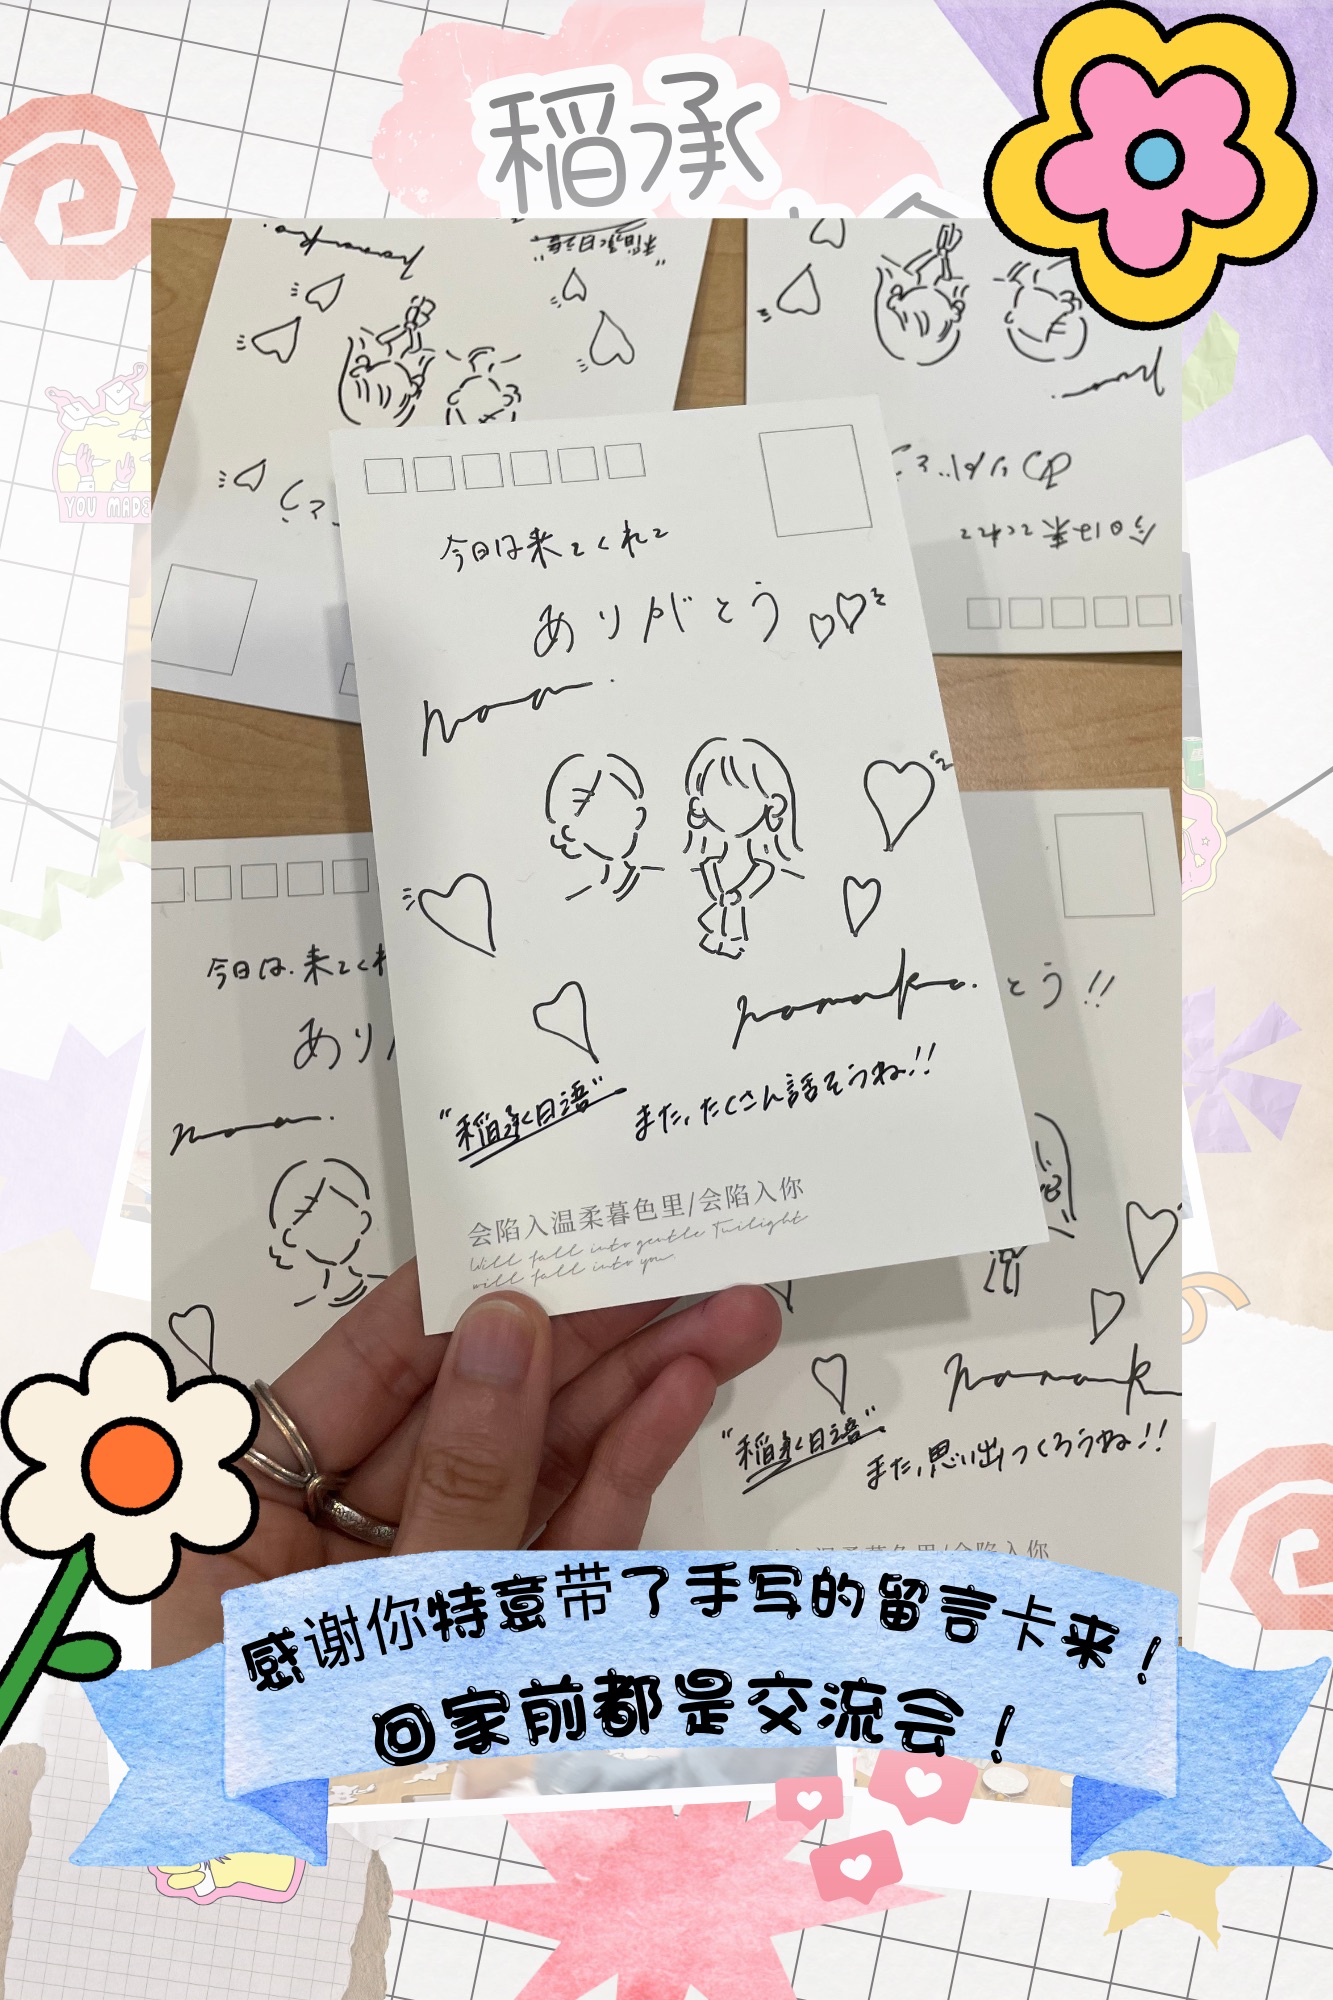 稻承
YOU MADE
今日は来てくれて
ありがとう
noa
nonoka.
"稲承日語"
また、たくさん話そうね!!
会陷入温柔暮色里/会陷入你
Will fall into gentle Twilight
will fall into you.
今日は来てくれ
あり
とう!!
"稲承日語"
また、思い出つくろうね!!
感谢你特意带了手写的留言卡来！
回家前都是交流会！